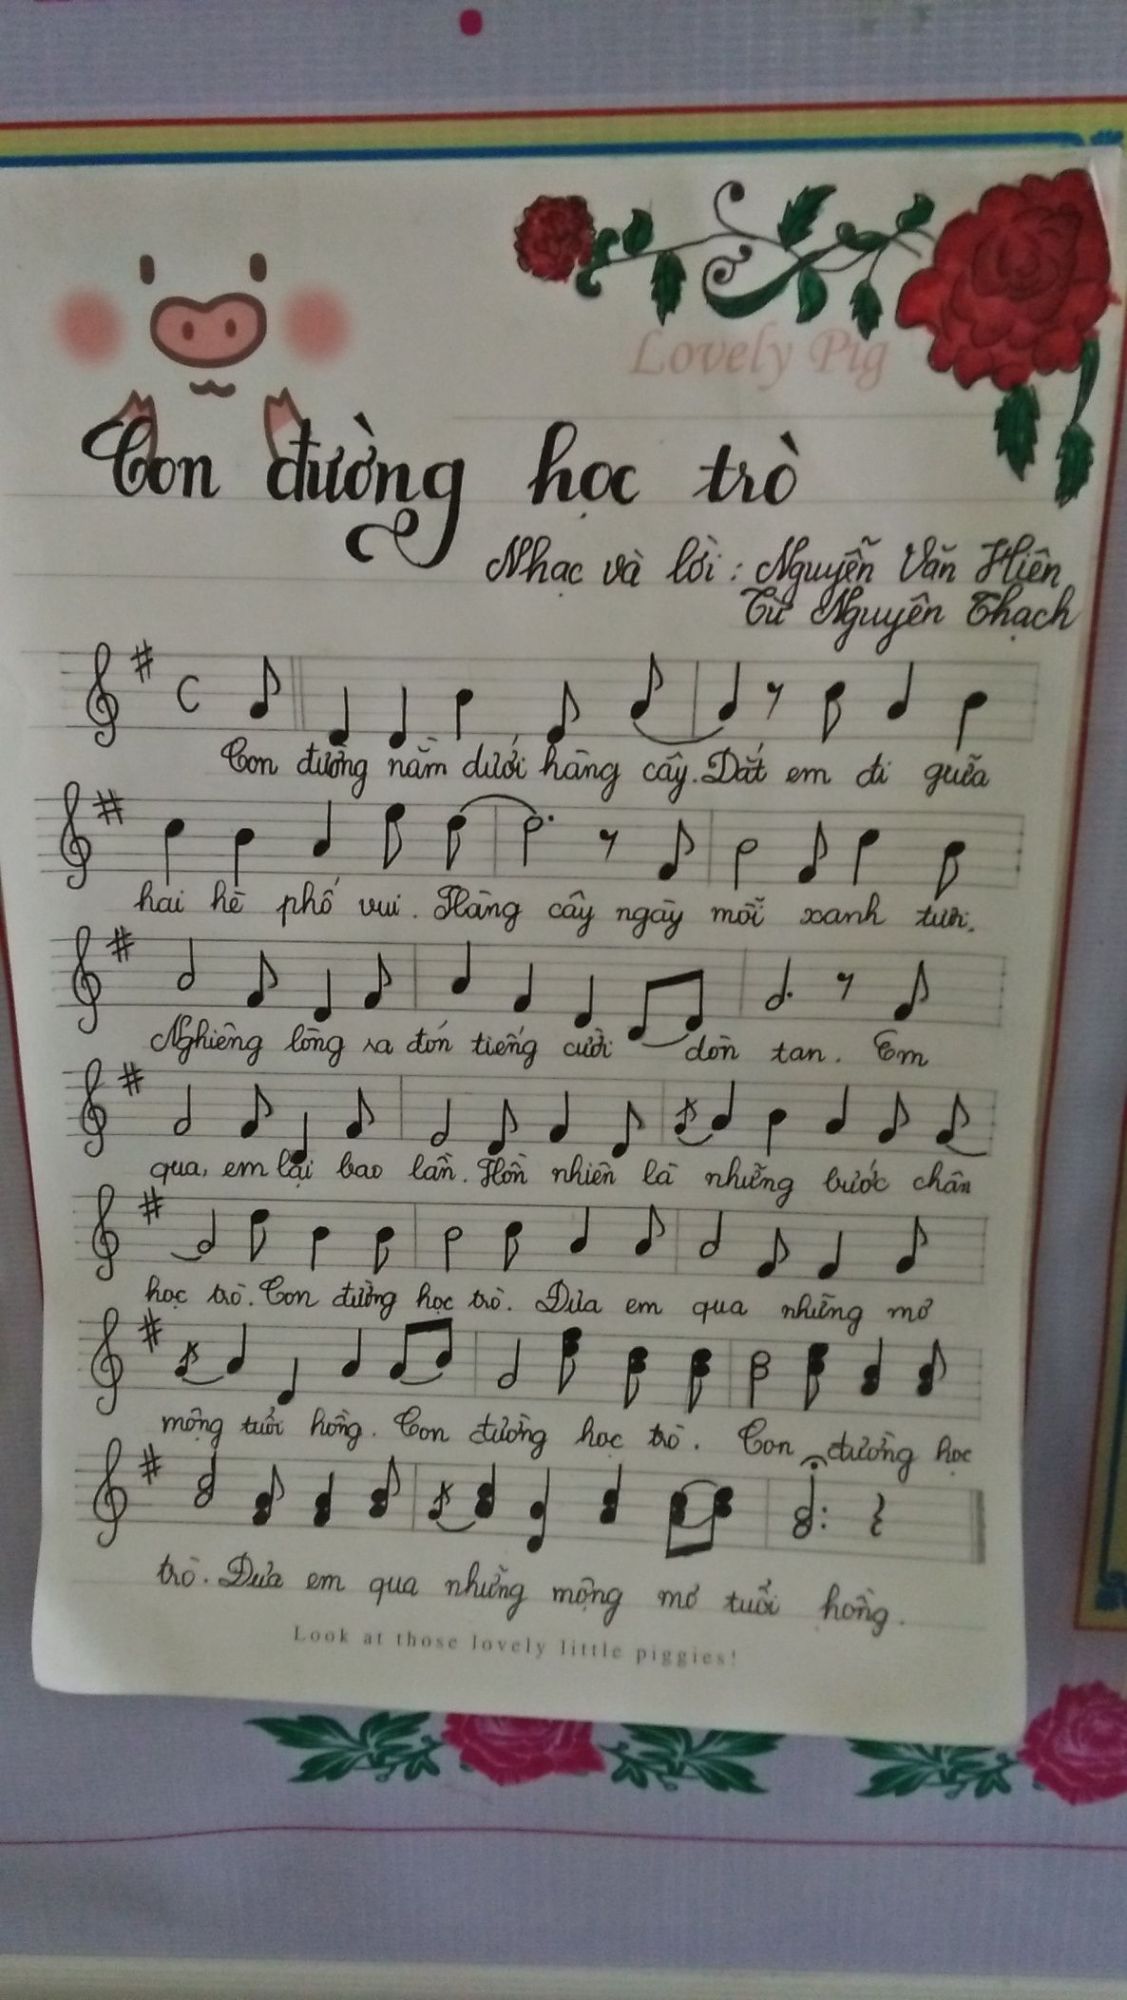 Lovely Pig
Con đường học trò
Nhạc và lời: Nguyễn Văn Hiên
Từ Nguyên Thạch
Con đường nằm dưới hàng cây. Dắt em đi giữa
hai hè phố vui. Hàng cây ngày mỗi xanh tươi.
Nghiêng lòng ra đón tiếng cười dòn tan. Em
qua, em lại bao lần. Hồn nhiên là những bước chân
học trò. Con đường học trò. Đưa em qua những mơ
mộng tuổi hồng. Con đường học trò. Con đường học
trò. Đưa em qua những mộng mơ tuổi hồng.
Look at those lovely little piggies!